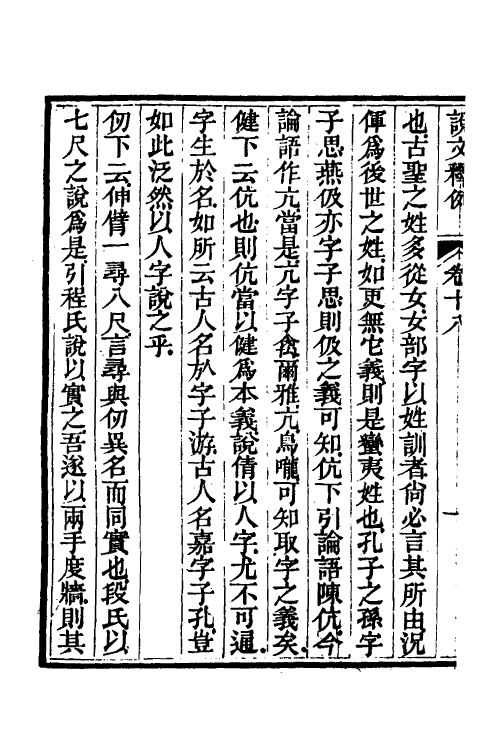 說文釋例 卷十八
也古聖之姓多從女女部字以姓訓者尙必言其所由況
僤爲後世之姓如更無它義則是蠻夷姓也孔子之孫字
子思燕伋亦字子思則伋之義可知伉下引論語陳伉今
論語作亢當是亢字子禽爾雅亢鳥嚨可知取字之義矣
健下云伉也則伉當以健爲本義說倩以人字尤不可通
字生於名如所云古人名㫃字子游古人名嘉字子孔豈
如此泛然以人字說之乎
仞下云伸臂一尋八尺言尋與仞異名而同實也段氏以
七尺之說爲是引程氏說以實之吾遂以兩手度牆則其